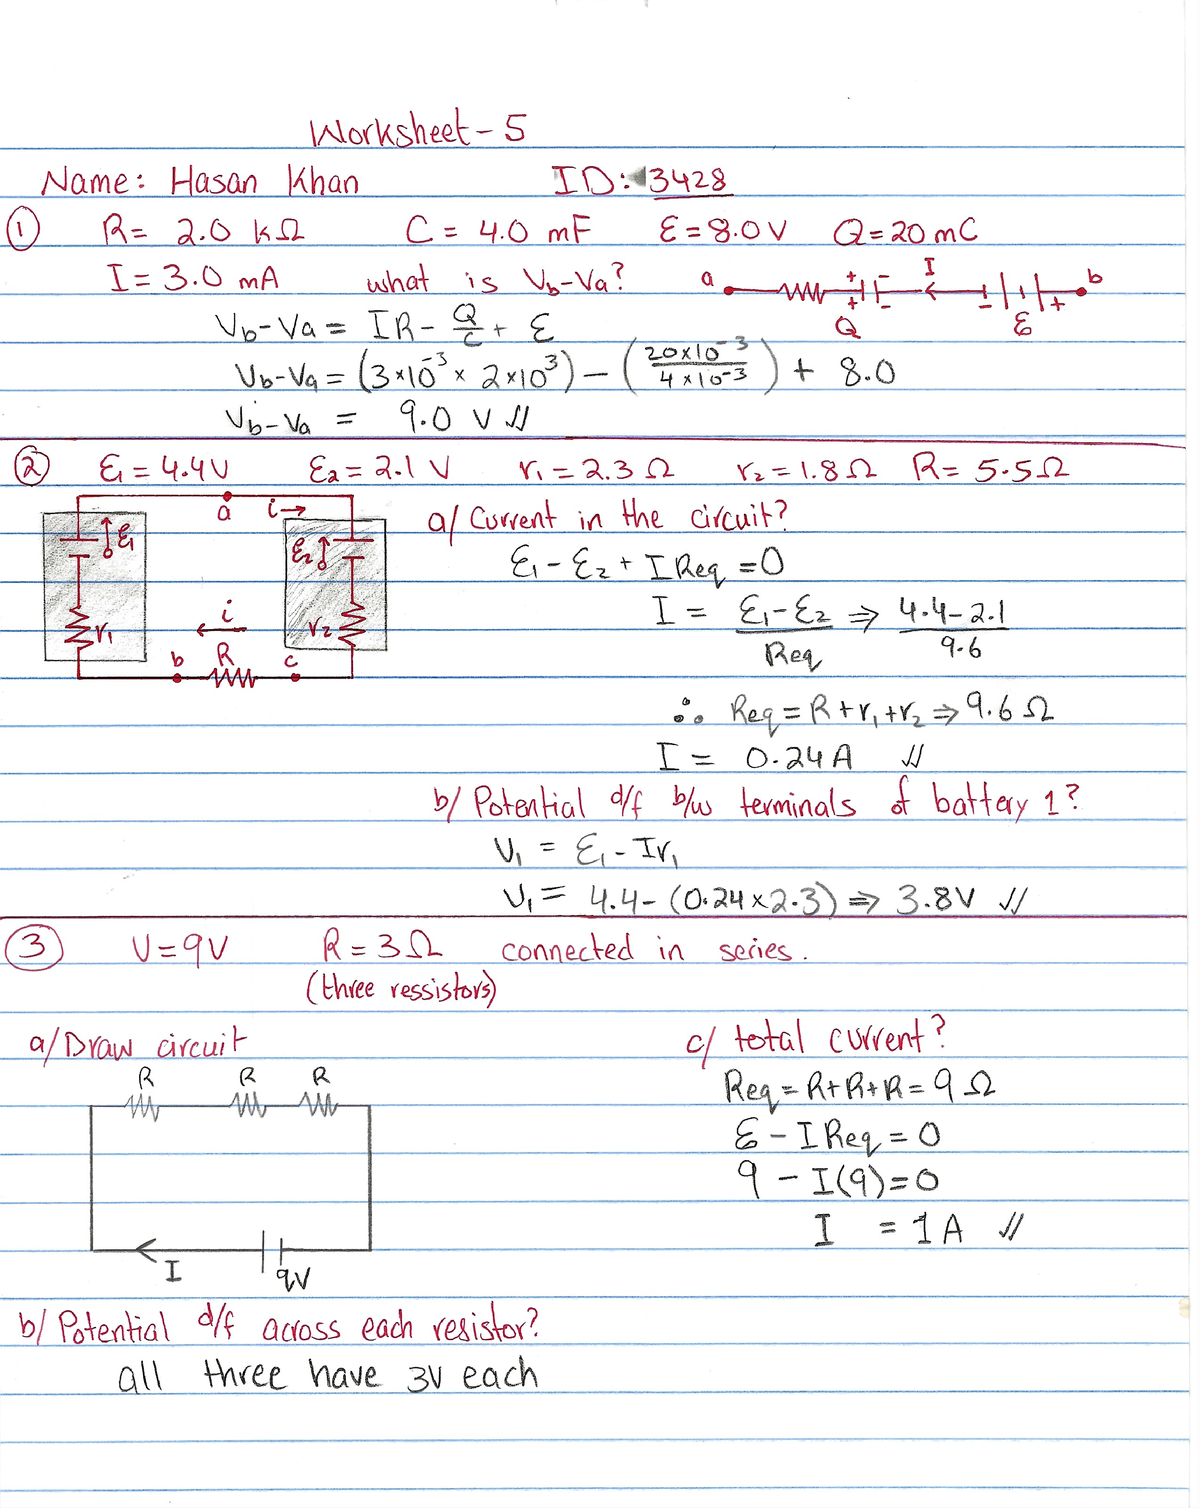 Worksheet - 5
Name: Hasan Khan ID: 3428
① R = 2.0 kΩ C = 4.0 mF Ɛ = 8.0 V Q = 20 mC
I = 3.0 mA what is Vb-Va?
a + - I b
+ Q - Ɛ +
Vb-Va = IR - Q/C + Ɛ
Vb-Va = (3×10⁻³ × 2×10³) - (20×10⁻³ / 4×10⁻³) + 8.0
Vb-Va = 9.0 V //
② Ɛ₁ = 4.4V Ɛ₂ = 2.1 V r₁ = 2.3 Ω r₂ = 1.8 Ω R = 5.5Ω
a i→
Ɛ₁ Ɛ₂
i
r₁ r₂
b R c
a/ Current in the circuit?
Ɛ₁ - Ɛ₂ + I Req = 0
I = Ɛ₁-Ɛ₂ / Req ⇒ 4.4-2.1 / 9.6
∴ Req = R + r₁ + r₂ ⇒ 9.6 Ω
I = 0.24 A //
b/ Potential d/f b/w terminals of battery 1?
V₁ = Ɛ₁ - Ir₁
V₁ = 4.4 - (0.24 × 2.3) ⇒ 3.8V //
③ V = 9V R = 3Ω connected in series.
(three ressistors)
a/ Draw circuit
R R R
I 9V
c/ total current?
Req = R+R+R = 9 Ω
Ɛ - I Req = 0
9 - I(9) = 0
I = 1 A //
b/ Potential d/f across each resistor?
all three have 3V each